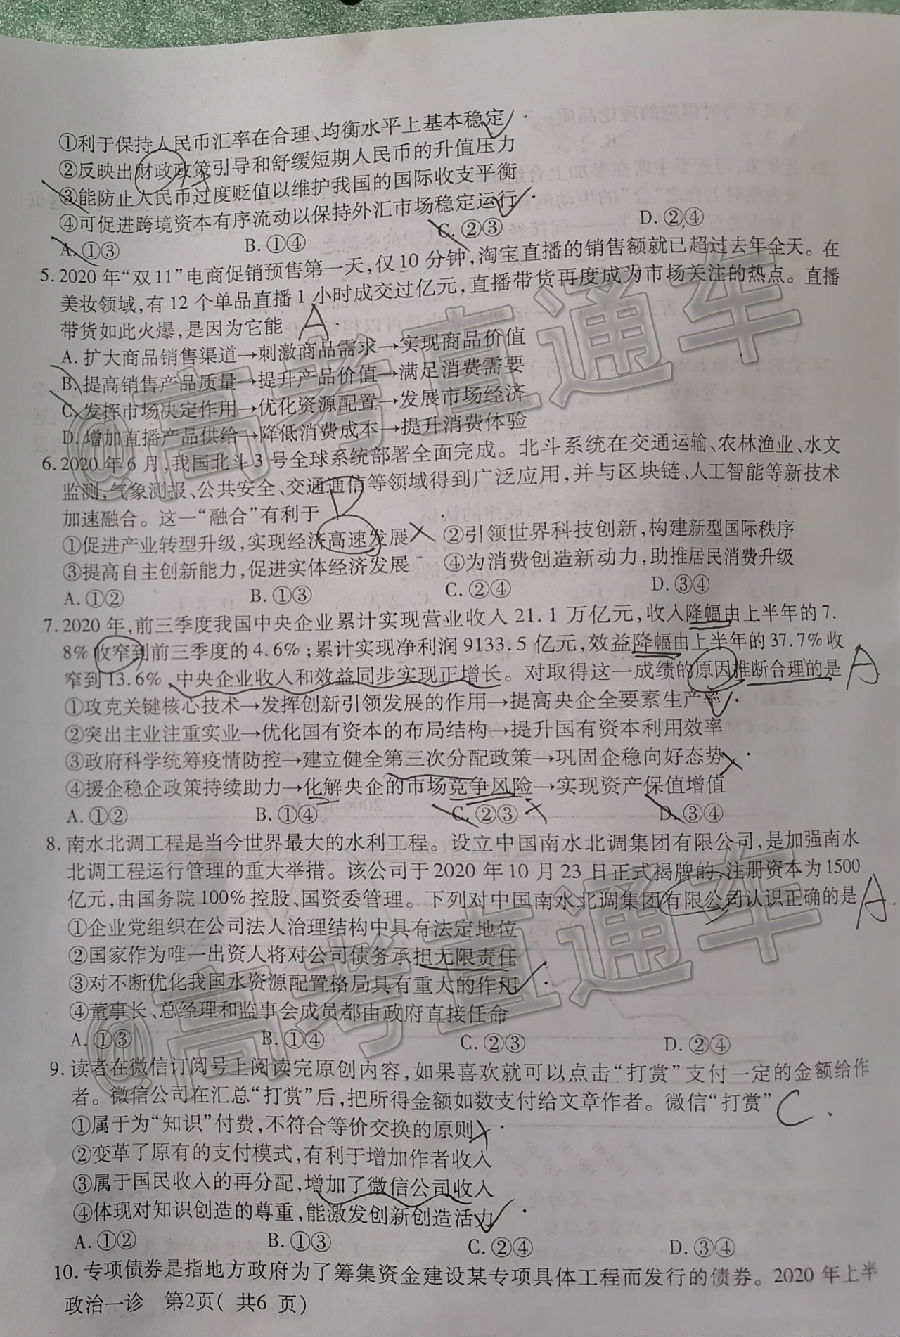 ①利于保持人民币汇率在合理、均衡水平上基本稳定
②反映出财政政策引导和舒缓短期人民币的升值压力
③能防止人民币过度贬值以维护我国的国际收支平衡
④可促进跨境资本有序流动以保持外汇市场稳定运行
A.①③ B.①④ C.②③ D.②④
5.2020年“双11”电商促销预售第一天,仅10分钟,淘宝直播的销售额就已超过去年全天。在
美妆领域,有12个单品直播1小时成交过亿元,直播带货再度成为市场关注的热点。直播
带货如此火爆,是因为它能 A
A.扩大商品销售渠道→刺激商品需求→实现商品价值
B.提高销售产品质量→提升产品价值→满足消费需要
C.发挥市场决定作用→优化资源配置→发展市场经济
D.增加直播产品供给→降低消费成本→提升消费体验
6.2020年6月,我国北斗3号全球系统部署全面完成。北斗系统在交通运输、农林渔业、水文
监测,气象测报、公共安全、交通通信等领域得到广泛应用,并与区块链,人工智能等新技术
加速融合。这一“融合”有利于 D
①促进产业转型升级,实现经济高速发展 ②引领世界科技创新,构建新型国际秩序
③提高自主创新能力,促进实体经济发展 ④为消费创造新动力,助推居民消费升级
A.①② B.①③ C.②④ D.③④
7.2020年,前三季度我国中央企业累计实现营业收入21.1万亿元,收入降幅由上半年的7.
8%收窄到前三季度的4.6%;累计实现净利润9133.5亿元,效益降幅由上半年的37.7%收
窄到13.6%,中央企业收入和效益同步实现正增长。对取得这一成绩的原因推断合理的是 A
①攻克关键核心技术→发挥创新引领发展的作用→提高央企全要素生产率
②突出主业注重实业→优化国有资本的布局结构→提升国有资本利用效率
③政府科学统筹疫情防控→建立健全第三次分配政策→巩固企稳向好态势
④援企稳企政策持续助力→化解央企的市场竞争风险→实现资产保值增值
A.①② B.①④ C.②③ D.③④
8.南水北调工程是当今世界最大的水利工程。设立中国南水北调集团有限公司,是加强南水
北调工程运行管理的重大举措。该公司于2020年10月23日正式揭牌的,注册资本为1500
亿元,由国务院100%控股、国资委管理。下列对中国南水北调集团有限公司认识正确的是 A
①企业党组织在公司法人治理结构中具有法定地位
②国家作为唯一出资人将对公司债务承担无限责任
③对不断优化我国水资源配置格局具有重大的作用
④董事长、总经理和监事会成员都由政府直接任命
A.①③ B.①④ C.②③ D.②④
9.读者在微信订阅号上阅读完原创内容,如果喜欢就可以点击“打赏”支付一定的金额给作
者。微信公司在汇总“打赏”后,把所得金额如数支付给文章作者。微信“打赏” C
①属于为“知识”付费,不符合等价交换的原则
②变革了原有的支付模式,有利于增加作者收入
③属于国民收入的再分配,增加了微信公司收入
④体现对知识创造的尊重,能激发创新创造活力
A.①② B.①③ C.②④ D.③④
10.专项债券是指地方政府为了筹集资金建设某专项具体工程而发行的债券。2020年上半
政治一诊 第2页(共6页)
@高考直通车
@高考直通车